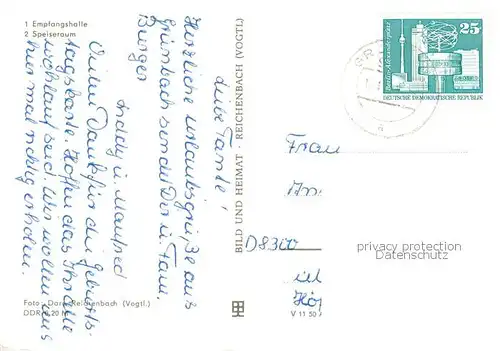 1 Empfangshalle
2 Speiseraum
Liebe Tante!
Herzliche Urlaubsgrüße aus
Grünbach sendet Dir u. Fam.
Bürger
u. Manfred
Vielen Dank für die Geburts-
tagskarte. Hoffen das Ihr alle
wohlauf seid. Wir wollen uns
hier mal richtig erholen.
Foto: Darr, Reichenbach (Vogtl.)
DDR 0,20 M
BILD UND HEIMAT · REICHENBACH (VOGTL)
V 11 50
25
Berlin-Alexanderplatz
DEUTSCHE DEMOKRATISCHE REPUBLIK
Frau
D8300
privacy protection
Datenschutz